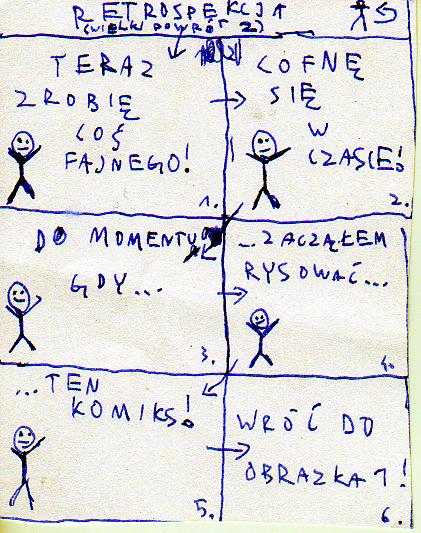 RETROSPEKCJA
(WIELKI POWRÓT 2)
TERAZ
ZROBIĘ
COŚ
FAJNEGO!
1.
COFNĘ
SIĘ
W
CZASIE!
2.
DO MOMENTU
GDY...
3.
...ZACZĄŁEM
RYSOWAĆ...
4.
...TEN
KOMIKS!
5.
WRÓĆ DO
OBRAZKA 1!
6.